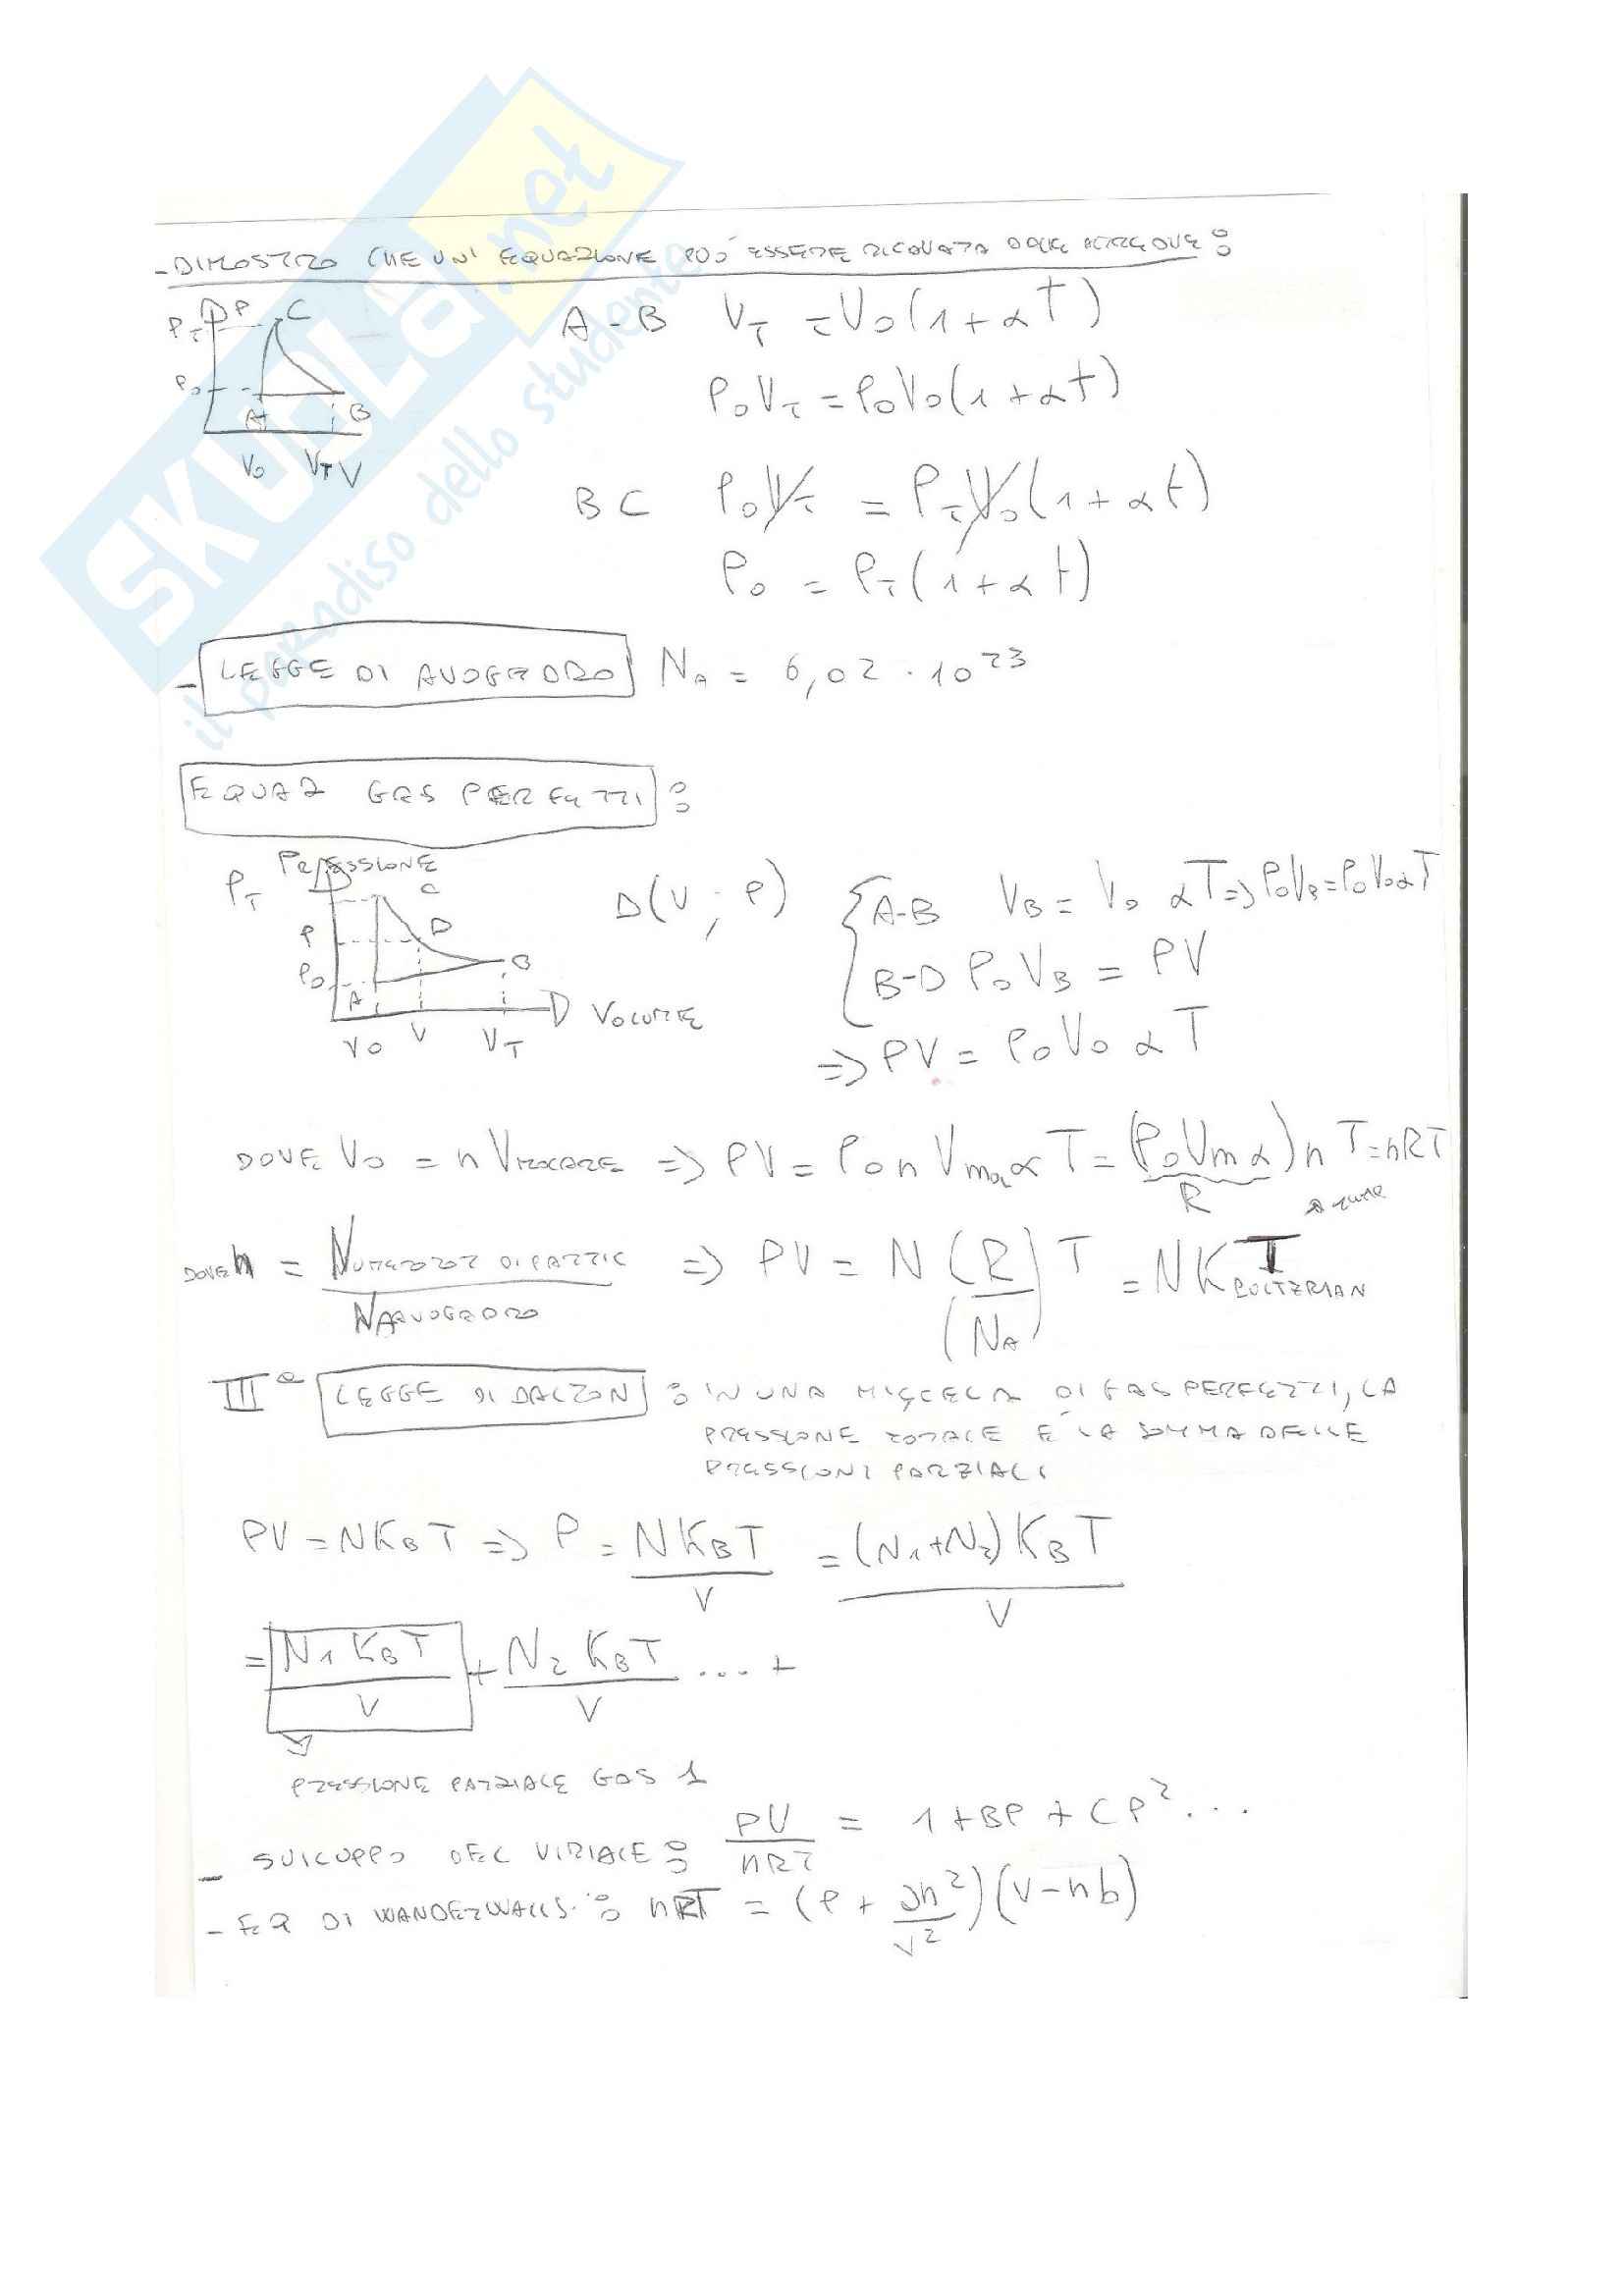 - DIMOSTRO CHE UN' EQUAZIONE PUO' ESSERE RICAVATA DALLE ALTRE DUE:
P_T P C
P_0 A B
V_0 V_T V
A-B V_T = V_0(1+αT)
P_0V_T = P_0V_0(1+αt)
BC P_0V_T = P_TV_0(1+αt)
P_0 = P_T(1+αt)
- LEGGE DI AVOGADRO N_A = 6,02 · 10^23
EQUAZ GAS PERFETTI:
PRESSIONE
P_T C
P D
P_0 B
A
VOLUME
V_0 V V_T
D(V; P) { A-B V_B = V_0 αT => P_0V_B = P_0V_0αT
B-D P_0V_B = PV
=> PV = P_0V_0 αT
DOVE V_0 = n V MOLARE => PV = P_0 n V_m α T = (P_0 V_m α) n T = nRT
R
DOVE n = NUMERO DI PARTIC / N AVOGADRO => PV = N (R / N_A) T = NK BOLTZMAN T
III° LEGGE DI DALTON: IN UNA MISCELA DI GAS PERFETTI, LA
PRESSIONE TOTALE E' LA SOMMA DELLE
PRESSIONI PARZIALI
PV = NK_BT => P = NK_BT / V = (N_1+N_2)K_BT / V
= N_1 K_BT / V + N_2 K_BT / V ... +
PRESSIONE PARZIALE GAS 1
- SVILUPPO DEL VIRIALE: PV / nRT = 1+BP+CP^2...
- EQ DI WANDERWALLS: nRT = (P + an^2 / V^2)(V-nb)
SKUOLA.net
il paradiso dello studente